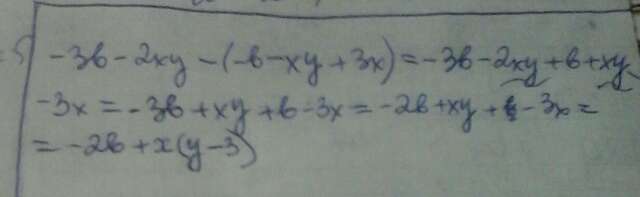 -3b-2xy-(-b-xy+3x)=-3b-2xy+b+xy
-3x=-3b+xy+b-3x=-2b+xy+-3x=
=-2b+x(y-3)